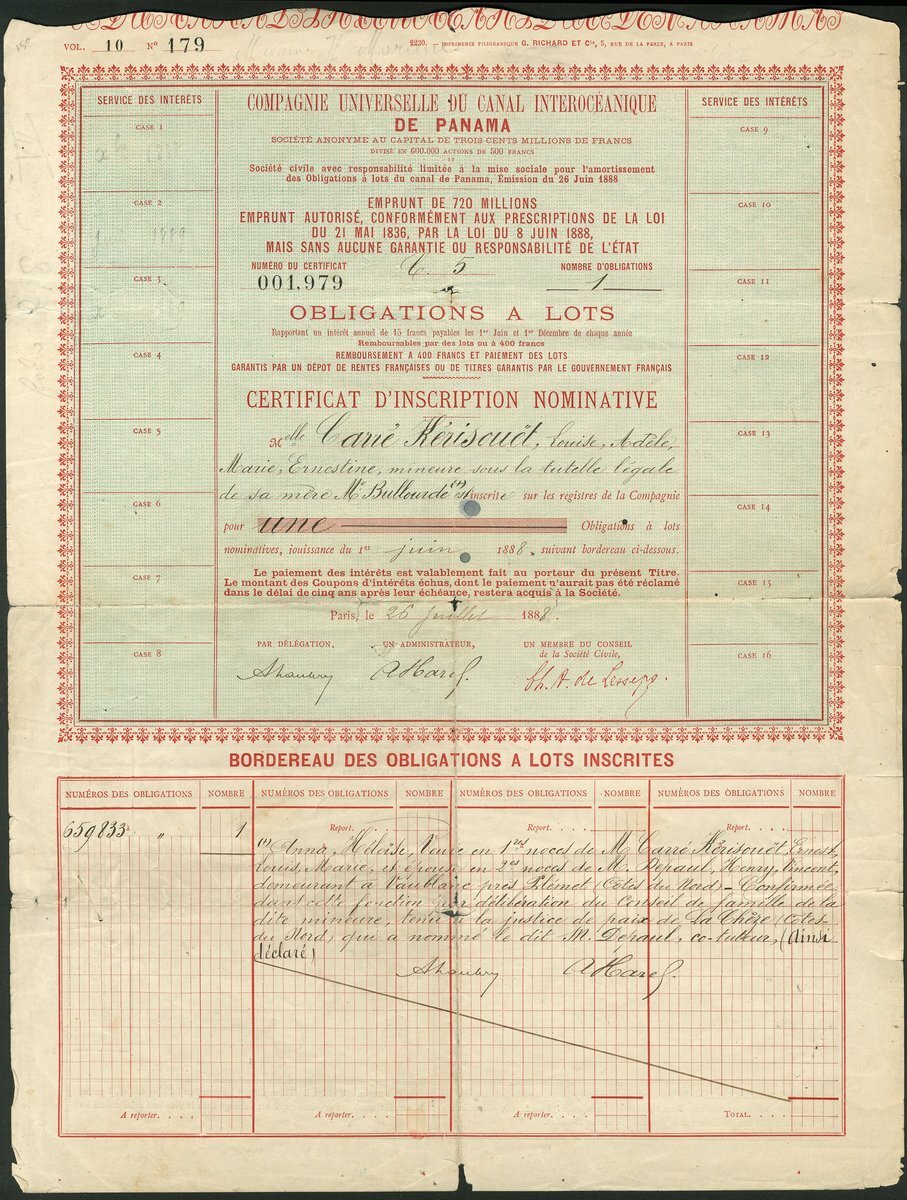 VOL. 10 N° 179
2230. — IMPRIMERIE FILIGRANIQUE G. RICHARD ET Cie, 5, RUE DE LA PERLE, A PARIS
SERVICE DES INTÉRÊTS
CASE 1
CASE 2
CASE 3
CASE 4
CASE 5
CASE 6
CASE 7
CASE 8
COMPAGNIE UNIVERSELLE DU CANAL INTEROCÉANIQUE
DE PANAMA
SOCIÉTÉ ANONYME AU CAPITAL DE TROIS CENTS MILLIONS DE FRANCS
DIVISÉ EN 600.000 ACTIONS DE 500 FRANCS
ET
Société civile avec responsabilité limitée à la mise sociale pour l'amortissement
des Obligations à lots du canal de Panama, Emission du 26 Juin 1888
EMPRUNT DE 720 MILLIONS
EMPRUNT AUTORISÉ, CONFORMÉMENT AUX PRESCRIPTIONS DE LA LOI
DU 21 MAI 1836, PAR LA LOI DU 8 JUIN 1888,
MAIS SANS AUCUNE GARANTIE OU RESPONSABILITÉ DE L'ÉTAT
NUMÉRO DU CERTIFICAT C. 5 NOMBRE D'OBLIGATIONS
001,979 1
OBLIGATIONS A LOTS
Rapportant un intérêt annuel de 15 francs payables les 1er Juin et 1er Décembre de chaque année
Remboursables par des lots ou à 400 francs
REMBOURSEMENT A 400 FRANCS ET PAIEMENT DES LOTS
GARANTIS PAR UN DÉPOT DE RENTES FRANÇAISES OU DE TITRES GARANTIS PAR LE GOUVERNEMENT FRANÇAIS
CERTIFICAT D'INSCRIPTION NOMINATIVE
Melle Carré Kérisouët, Louise, Adèle,
Marie, Ernestine, mineure sous la tutelle légale
de sa mère Me Bullourde (1) inscrite sur les registres de la Compagnie
pour une Obligations à lots
nominatives, jouissance du 1er juin 1888, suivant bordereau ci-dessous.
Le paiement des intérêts est valablement fait au porteur du présent Titre.
Le montant des Coupons d'intérêts échus, dont le paiement n'aurait pas été réclamé
dans le délai de cinq ans après leur échéance, restera acquis à la Société.
Paris, le 26 Juillet 1888.
PAR DÉLÉGATION, UN ADMINISTRATEUR, UN MEMBRE DU CONSEIL
de la Société Civile,
AHarel. Ch. A. de Lesseps.
SERVICE DES INTÉRÊTS
CASE 9
CASE 10
CASE 11
CASE 12
CASE 13
CASE 14
CASE 15
CASE 16
BORDEREAU DES OBLIGATIONS A LOTS INSCRITES
NUMÉROS DES OBLIGATIONS NOMBRE NUMÉROS DES OBLIGATIONS NOMBRE NUMÉROS DES OBLIGATIONS NOMBRE NUMÉROS DES OBLIGATIONS NOMBRE
659833 à " 1 Report. . . Report. . . Report. . .
(1) Anna, Héloïse, Veuve en 1res noces de M. Carré Kérisouët, Ernest,
Louis, Marie, et épouse en 2es noces de M. Depaul, Henry, Vincent,
demeurant à Vaublanc près Plémet (Côtes du Nord) – Confirmée
dans cette fonction par délibération du Conseil de famille de la
dite mineure, tenue à la justice de paix de La Chère (Côtes
du Nord) qui a nommé le dit M. Depaul, co-tuteur, (Ainsi
déclaré)
AHarel.
A reporter. . . . A reporter. . . . A reporter. . . . TOTAL. . . .